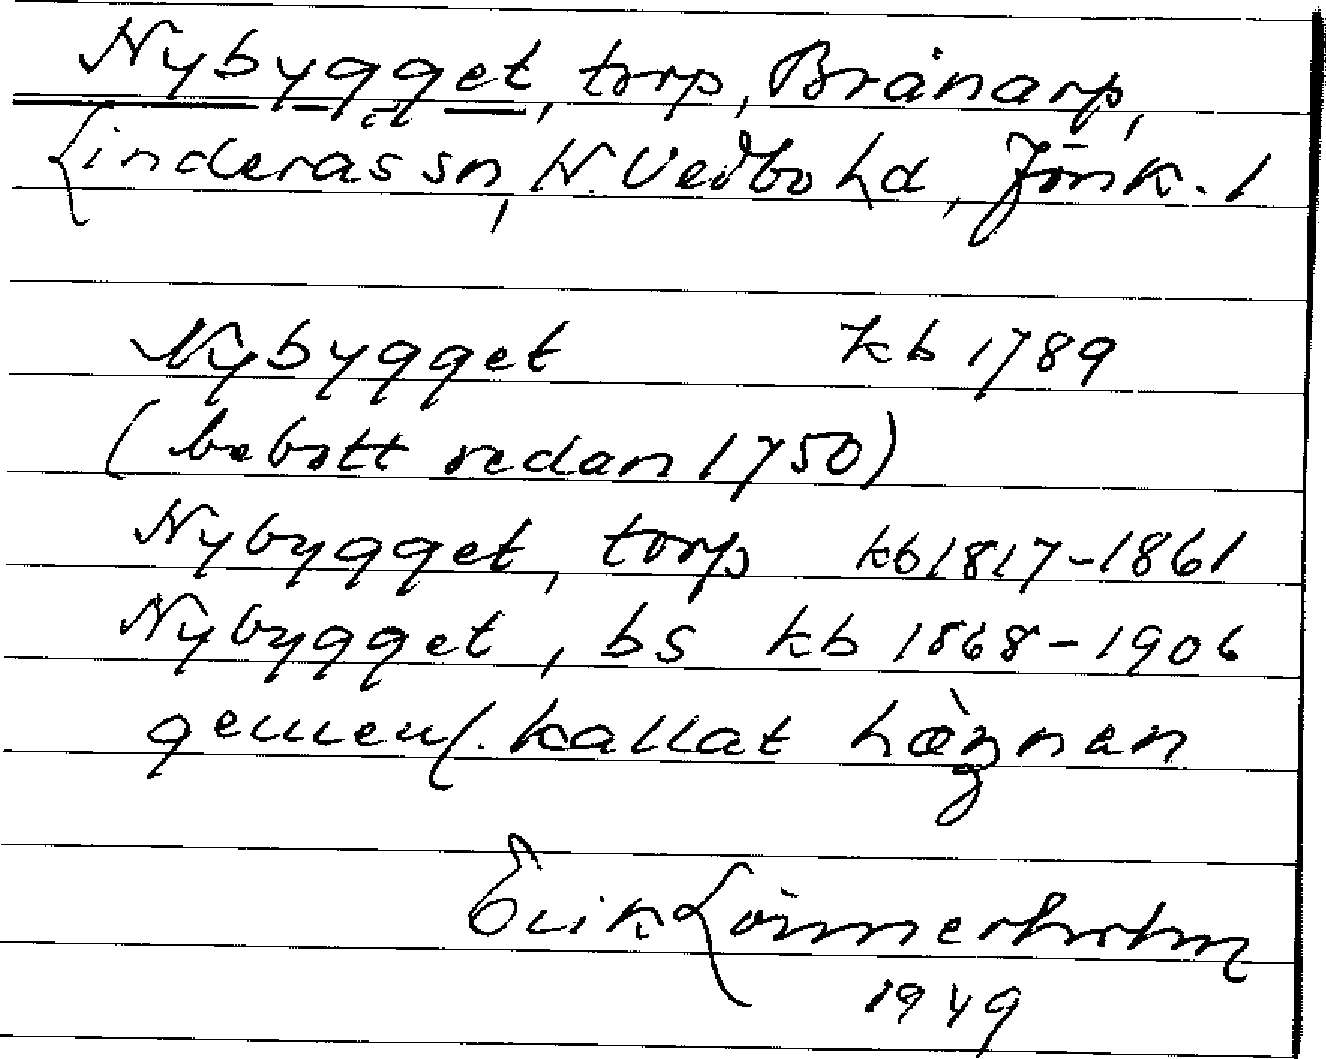 Nybygget, torp, Brånarp,
Linderås sn, N. Vedbo hd, Jönk. l
Nybygget kb 1789
(bebott redan 1750)
Nybygget, torp kb 1817-1861
Nybygget, bs kb 1868-1906
gemenl. kallat
Erik Lönnerholm
1949